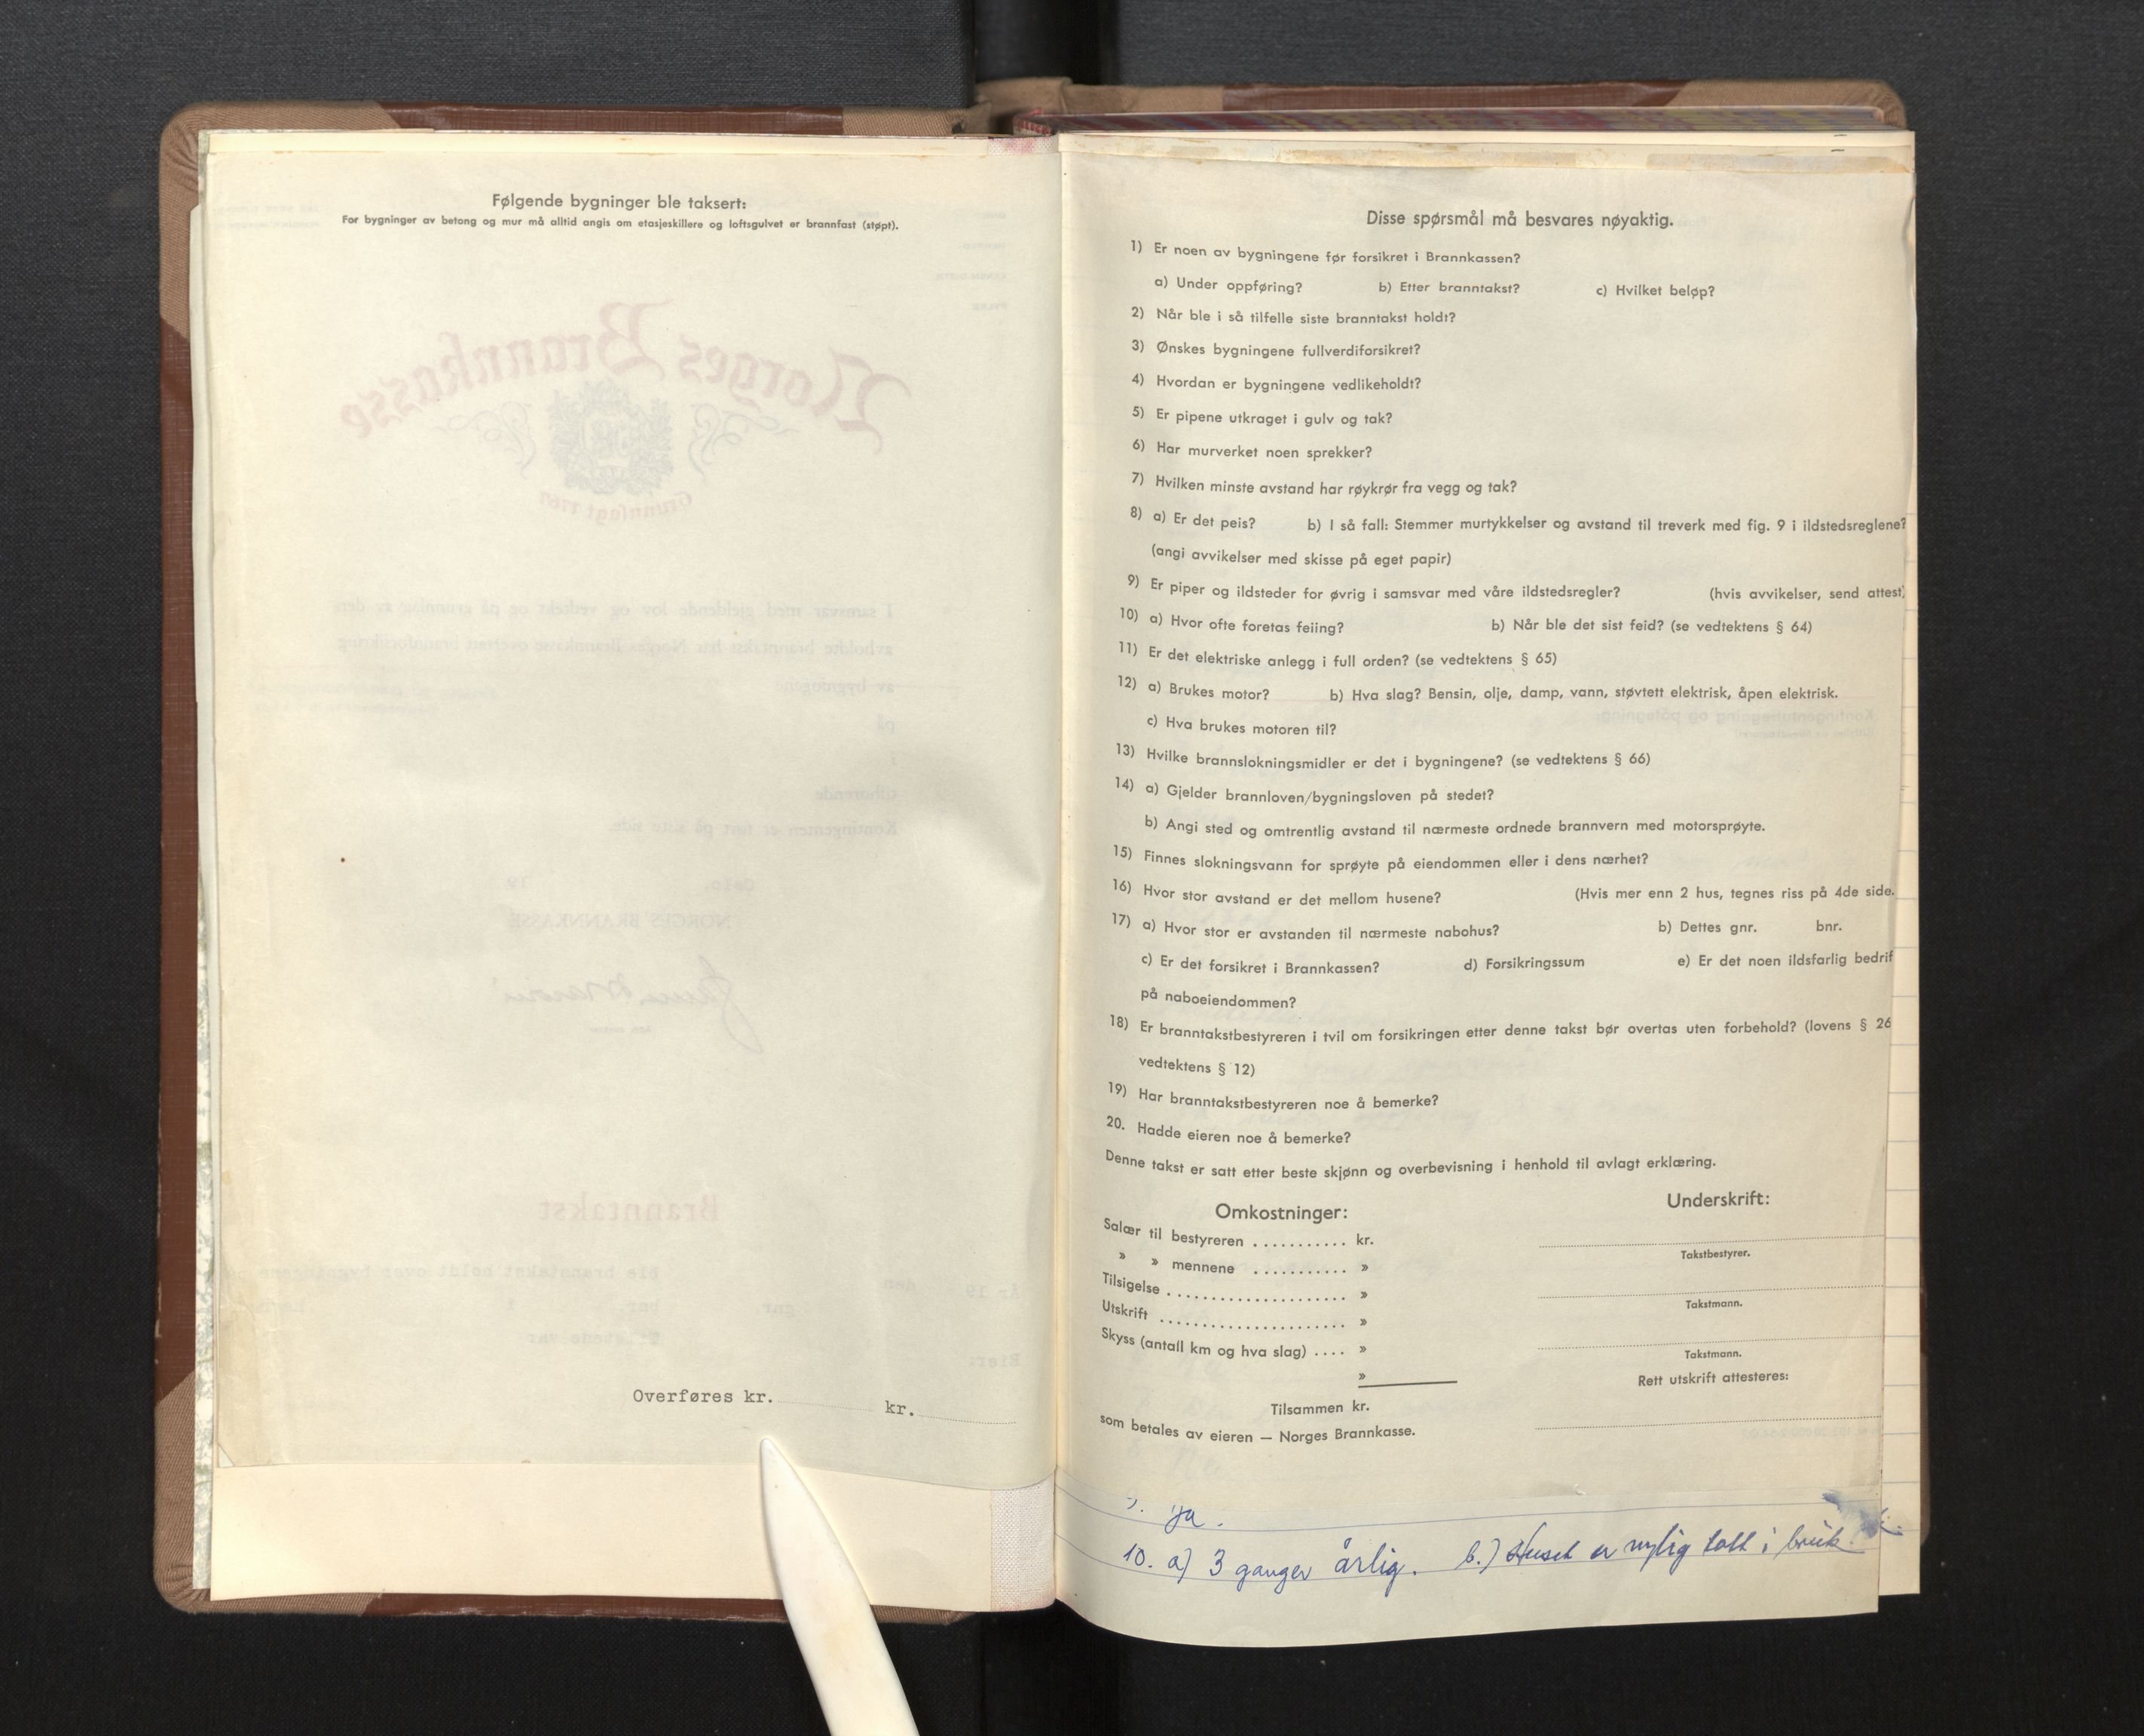 Følgende bygninger ble taksert:
For bygninger av betong og mur må alltid angis om etasjeskillere og loftsgulvet er brannfast (støpt).
Norges Brannkasse
Grunnlagt 1767
I samsvar med gjeldende lov og vedtekt og på grunnlag av den
avholdte branntakst har Norges Brannkasse overtatt brannforsikring
av bygningene
på
i
tilhørende
Kontingenten er ført på siste side.
Oslo, 19
NORGES BRANNKASSE
Branntakst
År 19 den ble branntakst holdt over bygningene på
gnr. bnr. i
Eier:
Overføres kr. kr.
Disse spørsmål må besvares nøyaktig.
1) Er noen av bygningene før forsikret i Brannkassen?
a) Under oppføring? b) Etter branntakst? c) Hvilket beløp?
2) Når ble i så tilfelle siste branntakst holdt?
3) Ønskes bygningene fullverdiforsikret?
4) Hvordan er bygningene vedlikeholdt?
5) Er pipene utkraget i gulv og tak?
6) Har murverket noen sprekker?
7) Hvilken minste avstand har røykrør fra vegg og tak?
8) a) Er det peis? b) I så fall: Stemmer murtykkelser og avstand til treverk med fig. 9 i ildstedsreglene?
(angi avvikelser med skisse på eget papir)
9) Er piper og ildsteder for øvrig i samsvar med våre ildstedsregler? (hvis avvikelser, send attest)
10) a) Hvor ofte foretas feiing? b) Når ble det sist feid? (se vedtektens § 64)
11) Er det elektriske anlegg i full orden? (se vedtektens § 65)
12) a) Brukes motor? b) Hva slag? Bensin, olje, damp, vann, støvtett elektrisk, åpen elektrisk.
c) Hva brukes motoren til?
Kontingentutregning og påtegning:
13) Hvilke brannslokningsmidler er det i bygningene? (se vedtektens § 66)
14) a) Gjelder brannloven/bygningsloven på stedet?
b) Angi sted og omtrentlig avstand til nærmeste ordnede brannvern med motorsprøyte.
15) Finnes slokningsvann for sprøyte på eiendommen eller i dens nærhet?
16) Hvor stor avstand er det mellom husene? (Hvis mer enn 2 hus, tegnes riss på 4de side.
17) a) Hvor stor er avstanden til nærmeste nabohus? b) Dettes gnr. bnr.
c) Er det forsikret i Brannkassen? d) Forsikringssum e) Er det noen ildsfarlig bedrif
på naboeiendommen?
18) Er branntakstbestyreren i tvil om forsikringen etter denne takst bør overtas uten forbehold? (lovens § 26
vedtektens § 12)
19) Har branntakstbestyreren noe å bemerke?
20. Hadde eieren noe å bemerke?
Denne takst er satt etter beste skjønn og overbevisning i henhold til avlagt erklæring.
Omkostninger:
Underskrift:
Salær til bestyreren ........... kr.
Takstbestyrer.
» » mennene ........... »
Tilsigelse ..................... »
Takstmann.
Utskrift ...................... »
Skyss (antall km og hva slag) .... »
Takstmann.
»
Rett utskrift attesteres:
Tilsammen kr.
som betales av eieren — Norges Brannkasse.
9. Ja.
10. a) 3 ganger årlig. b.) Huset er nylig tatt i bruk.